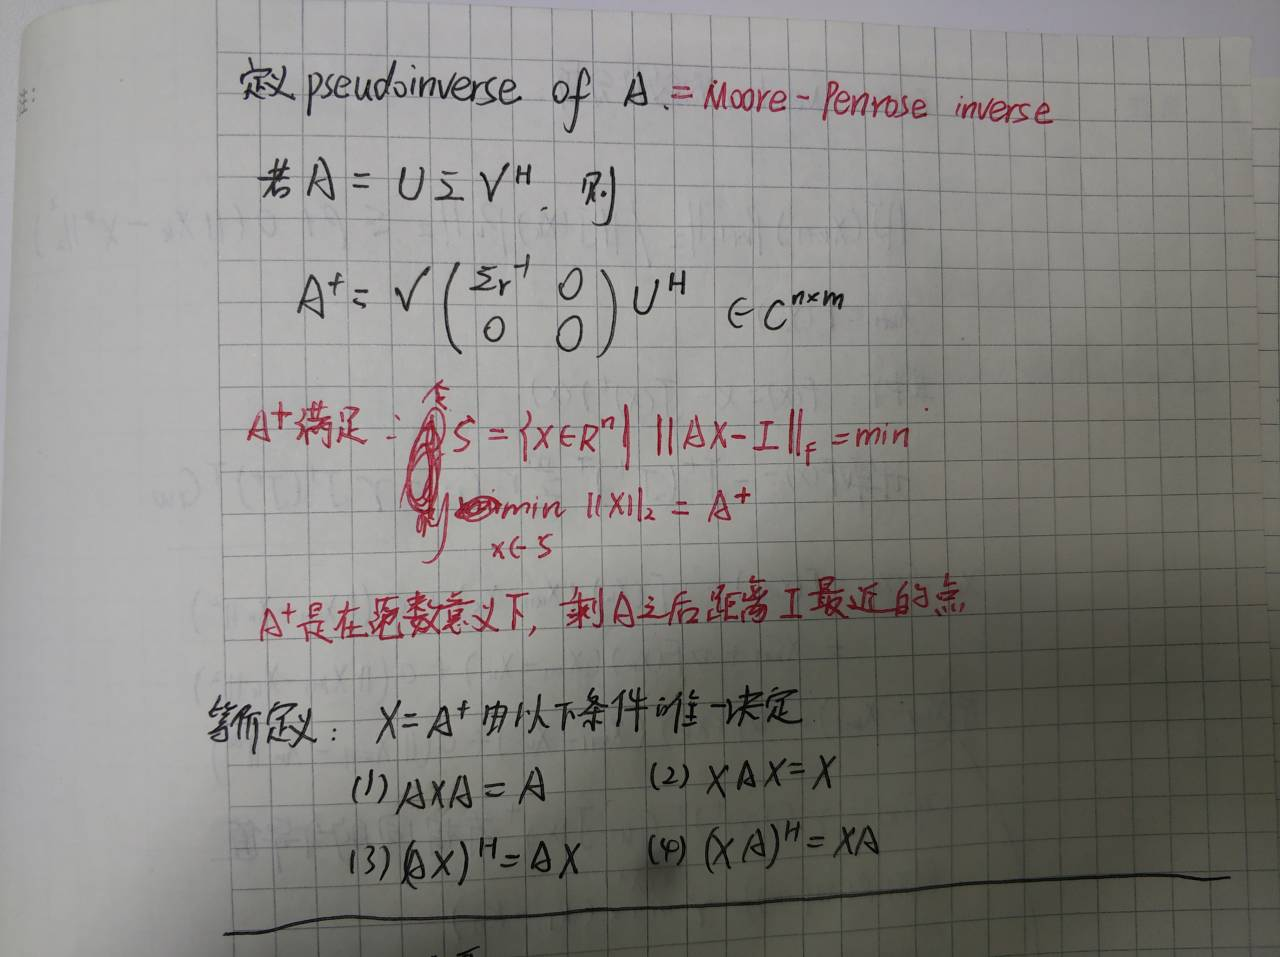 定义 pseudoinverse of A. = Moore-Penrose inverse
若 A = UΣV^H. 则
A^+ = V (Σr^-1 0
0 0) U^H ∈ C^{n×m}
A^+ 满足: 令 S = {X∈R^n | ||AX-I||_F = min
则 min ||X||_2 = A^+
x∈S
A^+是在范数意义下, 乘A之后距离I最近的点
等价定义: X=A^+ 由以下条件唯一决定
(1) AXA = A (2) XAX = X
(3) (AX)^H = AX (4) (XA)^H = XA